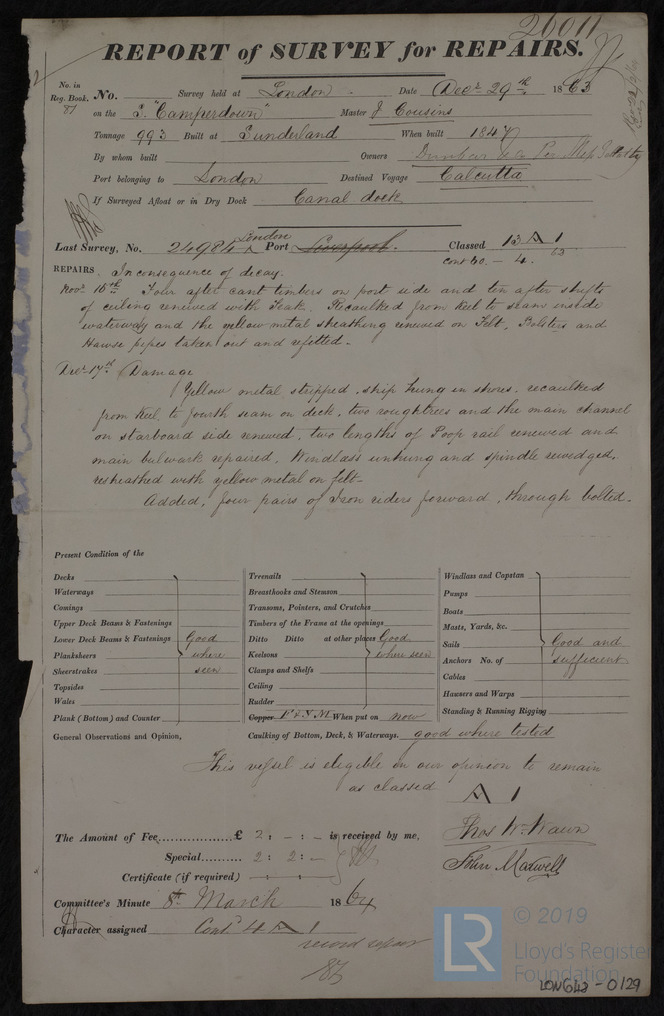 26011
REPORT of SURVEY for REPAIRS.
No. in Reg. Book. 87 No. Survey held at London Date Decr 29th 1863
on the S. "Camperdown" Master J Cousins
Tonnage 993 Built at Sunderland When built 1847
By whom built Owners Dunbar
Port belonging to London Destined Voyage Calcutta
If Surveyed Afloat or in Dry Dock Canal dock
Last Survey, No. 24984 London Port Liverpool. Classed 13 A 1
contd 60. - 4. 63
REPAIRS In consequence of decay.
Novr 16th Four after cant timbers on port side and ten after shifts
of ceiling renewed with Teak. Recaulked from keel to seam inside
waterway and the yellow metal sheathing renewed on Felt, Bolsters and
Hawse pipes taken out and refitted.
Decr 17th Damage
Yellow metal stripped, ship hung in shores, recaulked
from keel to fourth seam on deck, two roughtrees and the main channel
on starboard side renewed, two lengths of Poop rail renewed and
main bulwark repaired, Windlass unhung and spindle rewedged,
resheathed with yellow metal on felt-
Added, four pairs of Iron riders forward, through bolted.
Present Condition of the
Decks
Waterways
Comings
Upper Deck Beams & Fastenings
Lower Deck Beams & Fastenings Good
Planksheers where
Sheerstrakes seen
Topsides
Wales
Plank (Bottom) and Counter
Treenails
Breasthooks and Stemson
Transoms, Pointers, and Crutches
Timbers of the Frame at the openings
Ditto Ditto at other places Good
Keelsons where seen
Clamps and Shelfs
Ceiling
Rudder
Copper F & Y.M. When put on now
Windlass and Capstan
Pumps
Boats
Masts, Yards, &c.
Sails Good and
Anchors No. of sufficient
Cables
Hawsers and Warps
Standing & Running Rigging
General Observations and Opinion, Caulking of Bottom, Deck, & Waterways. good where tested
This vessel is eligible in our opinion to remain
as classed A 1
The Amount of Fee £ 2 : - : - is received by me,
Special 2 : 2 : -
Certificate (if required)
John Maxwell
Committee's Minute 8th March 1864
Character assigned Contd 4 A 1
record repair
© 2019
LR Lloyd's Register
Foundation
LON648-0129